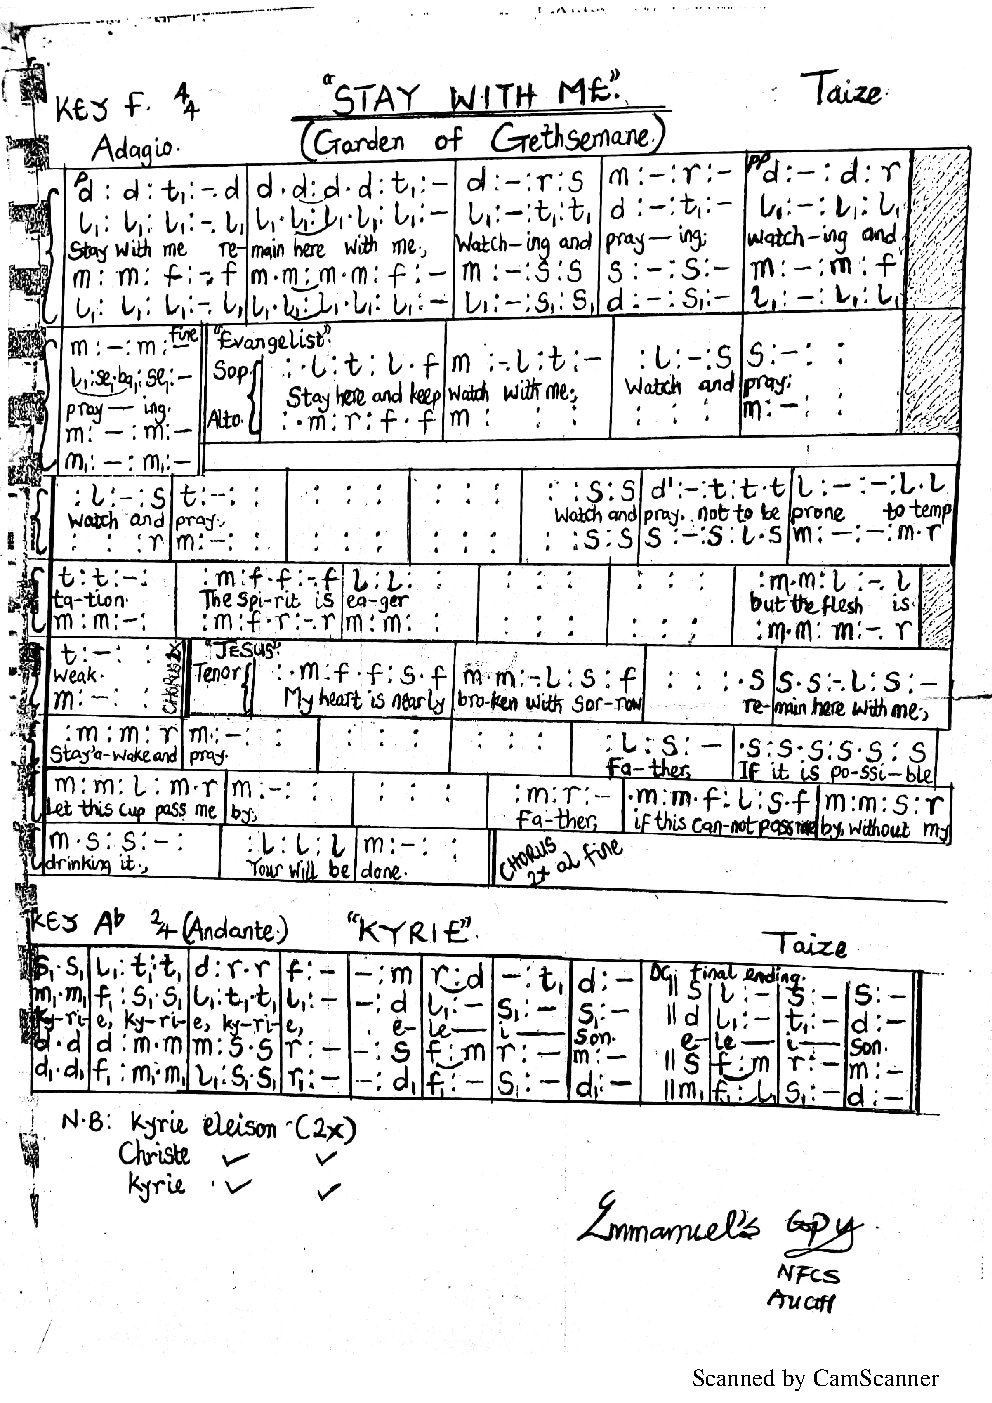 "STAY WITH ME."
KEY F. 4/4 Taize.
Adagio. (Garden of Gethsemane.)
p d : d : t₁ :-. d | d . d : d . d : t₁ :- | d :- : r : s | m :- : r :- | pp d :- : d : r
l₁ : l₁ : l₁ :-. l₁ | l₁ . l₁ : l₁ . l₁ : l₁ :- | l₁ :- : t₁ : t₁ | d :- : t₁ :- | l₁ :- : l₁ : l₁
Stay with me re-main here with me, Watch-ing and pray-ing; watch-ing and
m : m : f :-. f | m . m : m . m : f :- | m :- : s : s | s :- : s :- | m :- : m : f
l₁ : l₁ : l₁ :-. l₁ | l₁ . l₁ : l₁ . l₁ : l₁ :- | l₁ :- : s₁ : s₁ | d :- : s₁ :- | l₁ :- : l₁ : l₁
m :- : m :- Fine "Evangelist"
l₁ : se₁ . ba₁ : se₁ :-
pray-ing.
m :- : m :-
m₁ :- : m₁ :-
Sop : . l : t : l . f | m :-. l : t :- | : l :- : s | s :- : :
Stay here and keep watch with me; watch and pray;
Alto. : . m : r : f . f | m : : : | : : : | m :- : :
: l :- : s | t :- : : | : : : | : : : | : : s : s | d' :- . t : t . t | l :- :- : l . l
watch and pray; watch and pray. not to be prone to temp
: : : r | m :- : : | : : : | : : : | : : s : s | s :- . s : l . s | m :- :- : m . r
t : t :- : | : m . f . f :-. f | l : l : : | : : : | : : : | : m . m : l :-. l
ta-tion. The Spi-rit is ea-ger but the flesh is
m : m :- : | : m . f . r :-. r | m : m : : | : : : | : : : | : m . m : m :-. r
t :- : : CHORUS 2x "JESUS"
weak.
m :- : :
Tenor : . m : f . f : s . f | m . m :-. l : s : f | : : : . s | s . s :-. l : s :-
My heart is nearly bro-ken with sor-row re-main here with me;
: m : m : r | m :- : : | : : : | : : : | : l : s :- | . s : s . s . s . s : s
Stay a-wake and pray. Fa-ther, If it is po-ssi-ble
m : m : l : m . r | m :- : : | : : : | : m : r :- | . m : m . f : l : s . f | m : m : s : r
Let this cup pass me by; Fa-ther; if this can-not pass me by, without my
m . s : s :- : | : l : l : l | m :- : : CHORUS 2x al fine
drinking it, Your will be done.
KEY A♭ 2/4 (Andante.) "KYRIE". Taize
s₁ . s₁ | l₁ : t₁ . t₁ | d : r . r | f :- | - : m | r : d | - : t₁ | d :- | DC || final ending. s | l :- | s :- | s :-
m₁ . m₁ | f₁ : s₁ . s₁ | l₁ : t₁ . t₁ | l₁ :- | - : d | l₁ :- | s₁ :- | s₁ :- || d | l₁ :- | t₁ :- | d :-
ky-ri-e, ky-ri-e, ky-ri-e, e-le—i—son. e-le—i—son.
d . d | d : m . m | m : s . s | r :- | - : s | f : m | r :- | m :- || s | f : m | r :- | m :-
d₁ . d₁ | f₁ : m₁ . m₁ | l₁ : s₁ . s₁ | r₁ :- | - : d₁ | f₁ :- | s₁ :- | d₁ :- || m₁ | f₁ : l₁ | s₁ :- | d :-
N.B: Kyrie eleison (2x)
Christe ✓ ✓
Kyrie ✓ ✓
Emmanuel's Copy.
NFCS
AUCH
Scanned by CamScanner